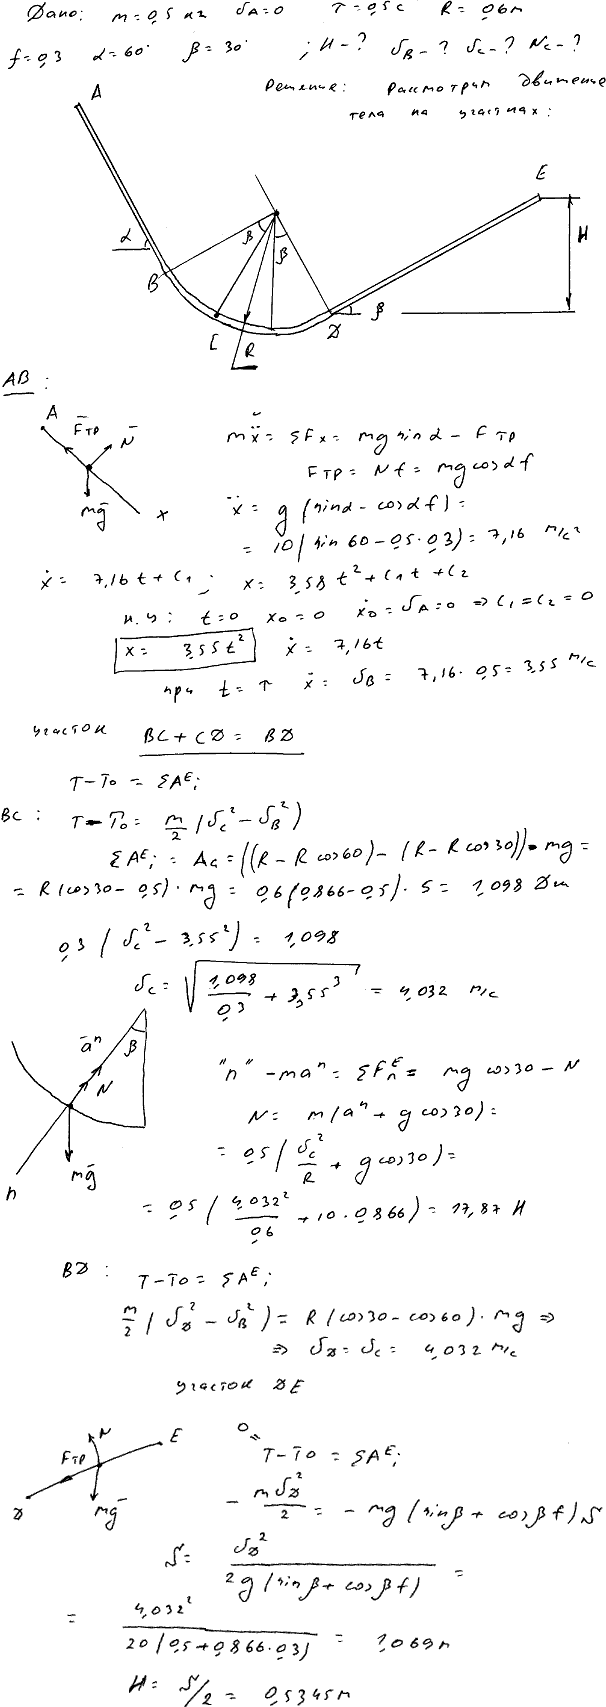 Дано: m=0,5 кг υA=0 τ=0,5 с R=0,6м
f=0,3 α=60° β=30° ; H-? υB-? υc-? Nc-?
Решение: Рассмотрим движение
тела на участках:
A
E
α
β
β
H
B
C
R
D
β
AB:
A
F̄тр
N̄
mḡ
x
mẍ = ΣFx = mg sin α - Fтр
Fтр = Nf = mg cos α f
ẍ = g (sin α - cos α f) =
= 10 (sin 60 - 0,5·0,3) = 7,16 м/с²
ẋ = 7,16 t + C1 ; x = 3,58 t² + C1 t + C2
н.у: t=0 x0=0 ẋ0=υA=0 ⇒ C1=C2=0
x = 3,55 t² ẋ = 7,16t
при t=τ ẋ = υB = 7,16·0,5 = 3,55 м/с
участок BC + CD = BD
T-T0 = ΣAᴱi
BC: T-T0 = m/2 (υc² - υB²)
ΣAᴱi = AG = ((R - R cos60) - (R - R cos30))·mg =
= R(cos30 - 0,5)·mg = 0,6(0,866-0,5)·5 = 1,098 Дж
0,3 (υc² - 3,55²) = 1,098
υc = √(1,098/0,3 + 3,55³) = 4,032 м/с
āⁿ
β
N
mḡ
n
"n" -maⁿ = ΣFnᴱ = mg cos30 - N
N = m(aⁿ + g cos30) =
= 0,5 (υc²/R + g cos30) =
= 0,5 (4,032²/0,6 + 10·0,866) = 17,87 H
BD: T-T0 = ΣAᴱi
m/2 (υD² - υB²) = R(cos30 - cos60)·mg ⇒
⇒ υD = υc = 4,032 м/с
участок DE
N
E
Fтр
D
mḡ
0=
T-T0 = ΣAᴱi
- mυD²/2 = - mg (sin β + cos β f) S
S = υD² / 2g (sin β + cos β f) =
= 4,032² / 20 (0,5 + 0,866·0,3) = 1,069м
H = S/2 = 0,5345м